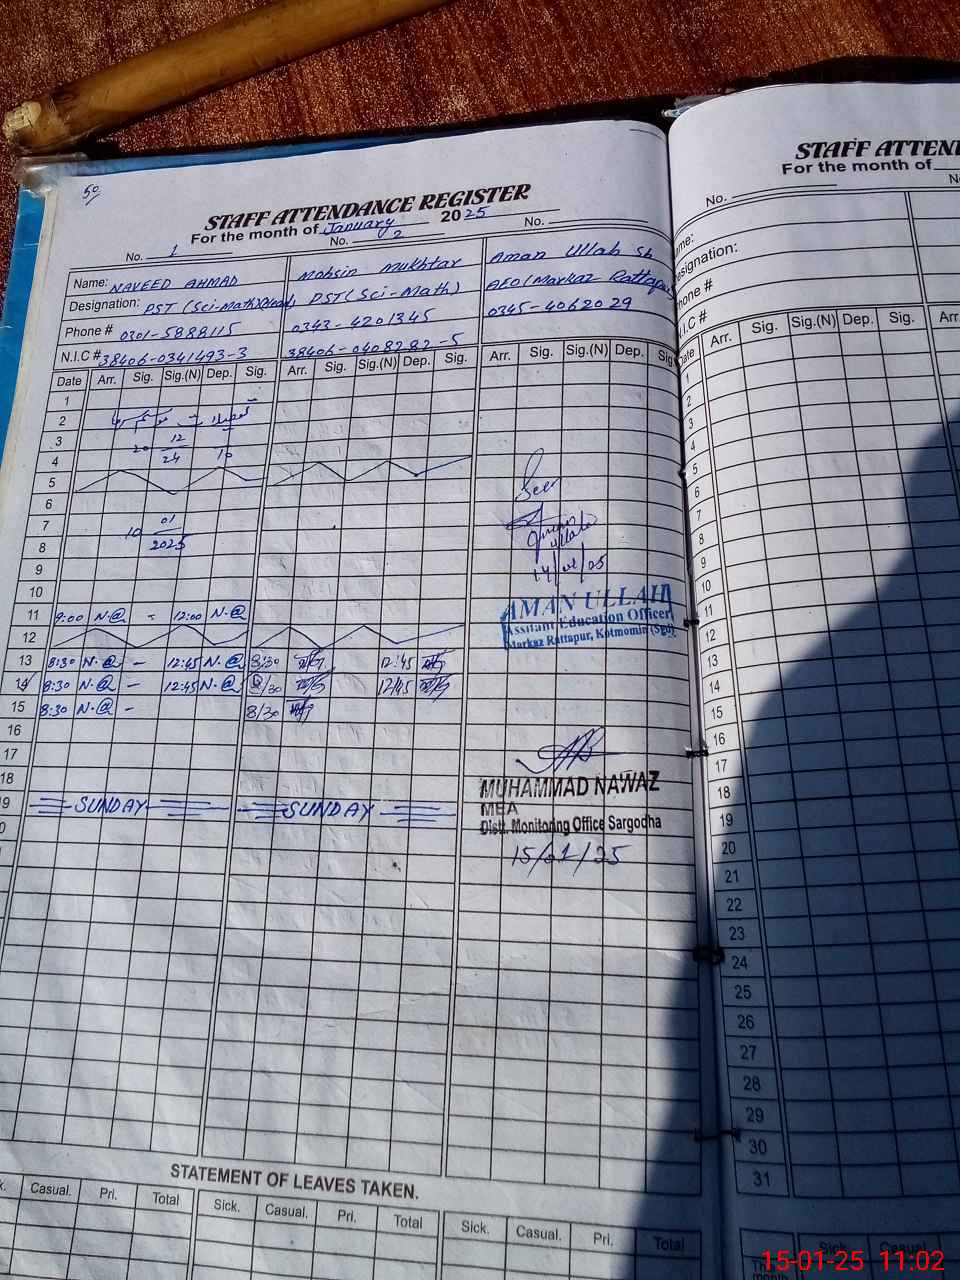 50
STAFF ATTENDANCE REGISTER
For the month of January 2025
No. 1 No. 2 No.
Name: NAVEED AHMAD Mohsin Mukhtar Aman Ullah Sb
Designation: PST (Sci-Math)(Head) PST (Sci-Math) AEO (Markaz Rattapur
Phone # 0301-5888115 0343-4201345 0345-4062029
N.I.C # 38406-0341493-3 38406-0408282-5
Date Arr. Sig. Sig.(N) Dep. Sig. Arr. Sig. Sig.(N) Dep. Sig. Arr. Sig. Sig.(N) Dep. Sig
1
2
3 20 12 24
4
5
6
7 10 01 2025
8
9
10
11 9:00 N.@ - 12:00 N.@
12
13 8:30 N.@ - 12:45 N.@ 8/30 12:45
14 8:30 N.@ - 12:45 N.@ 8/30 12/45
15 8:30 N.@ - 8/30
16
17
18
9 SUNDAY SUNDAY
0
Seen
14/01/25
AMAN ULLAH
Assitant Education Officer
Markaz Rattapur, Kotmomin (Sgd)
MUHAMMAD NAWAZ
MEA
Distt. Monitoring Office Sargodha
15/01/25
STATEMENT OF LEAVES TAKEN.
k. Casual. Pri. Total Sick. Casual. Pri. Total Sick. Casual. Pri. Total
STAFF ATTEN
For the month of
No. No
me:
esignation:
hone #
N.I.C #
Date Arr. Sig. Sig.(N) Dep. Sig. Arr.
1
2
3
4
5
6
7
8
9
10
11
12
13
14
15
16
17
18
19
20
21
22
23
24
25
26
27
28
29
30
31
Sick. Casual.
month
15-01-25 11:02